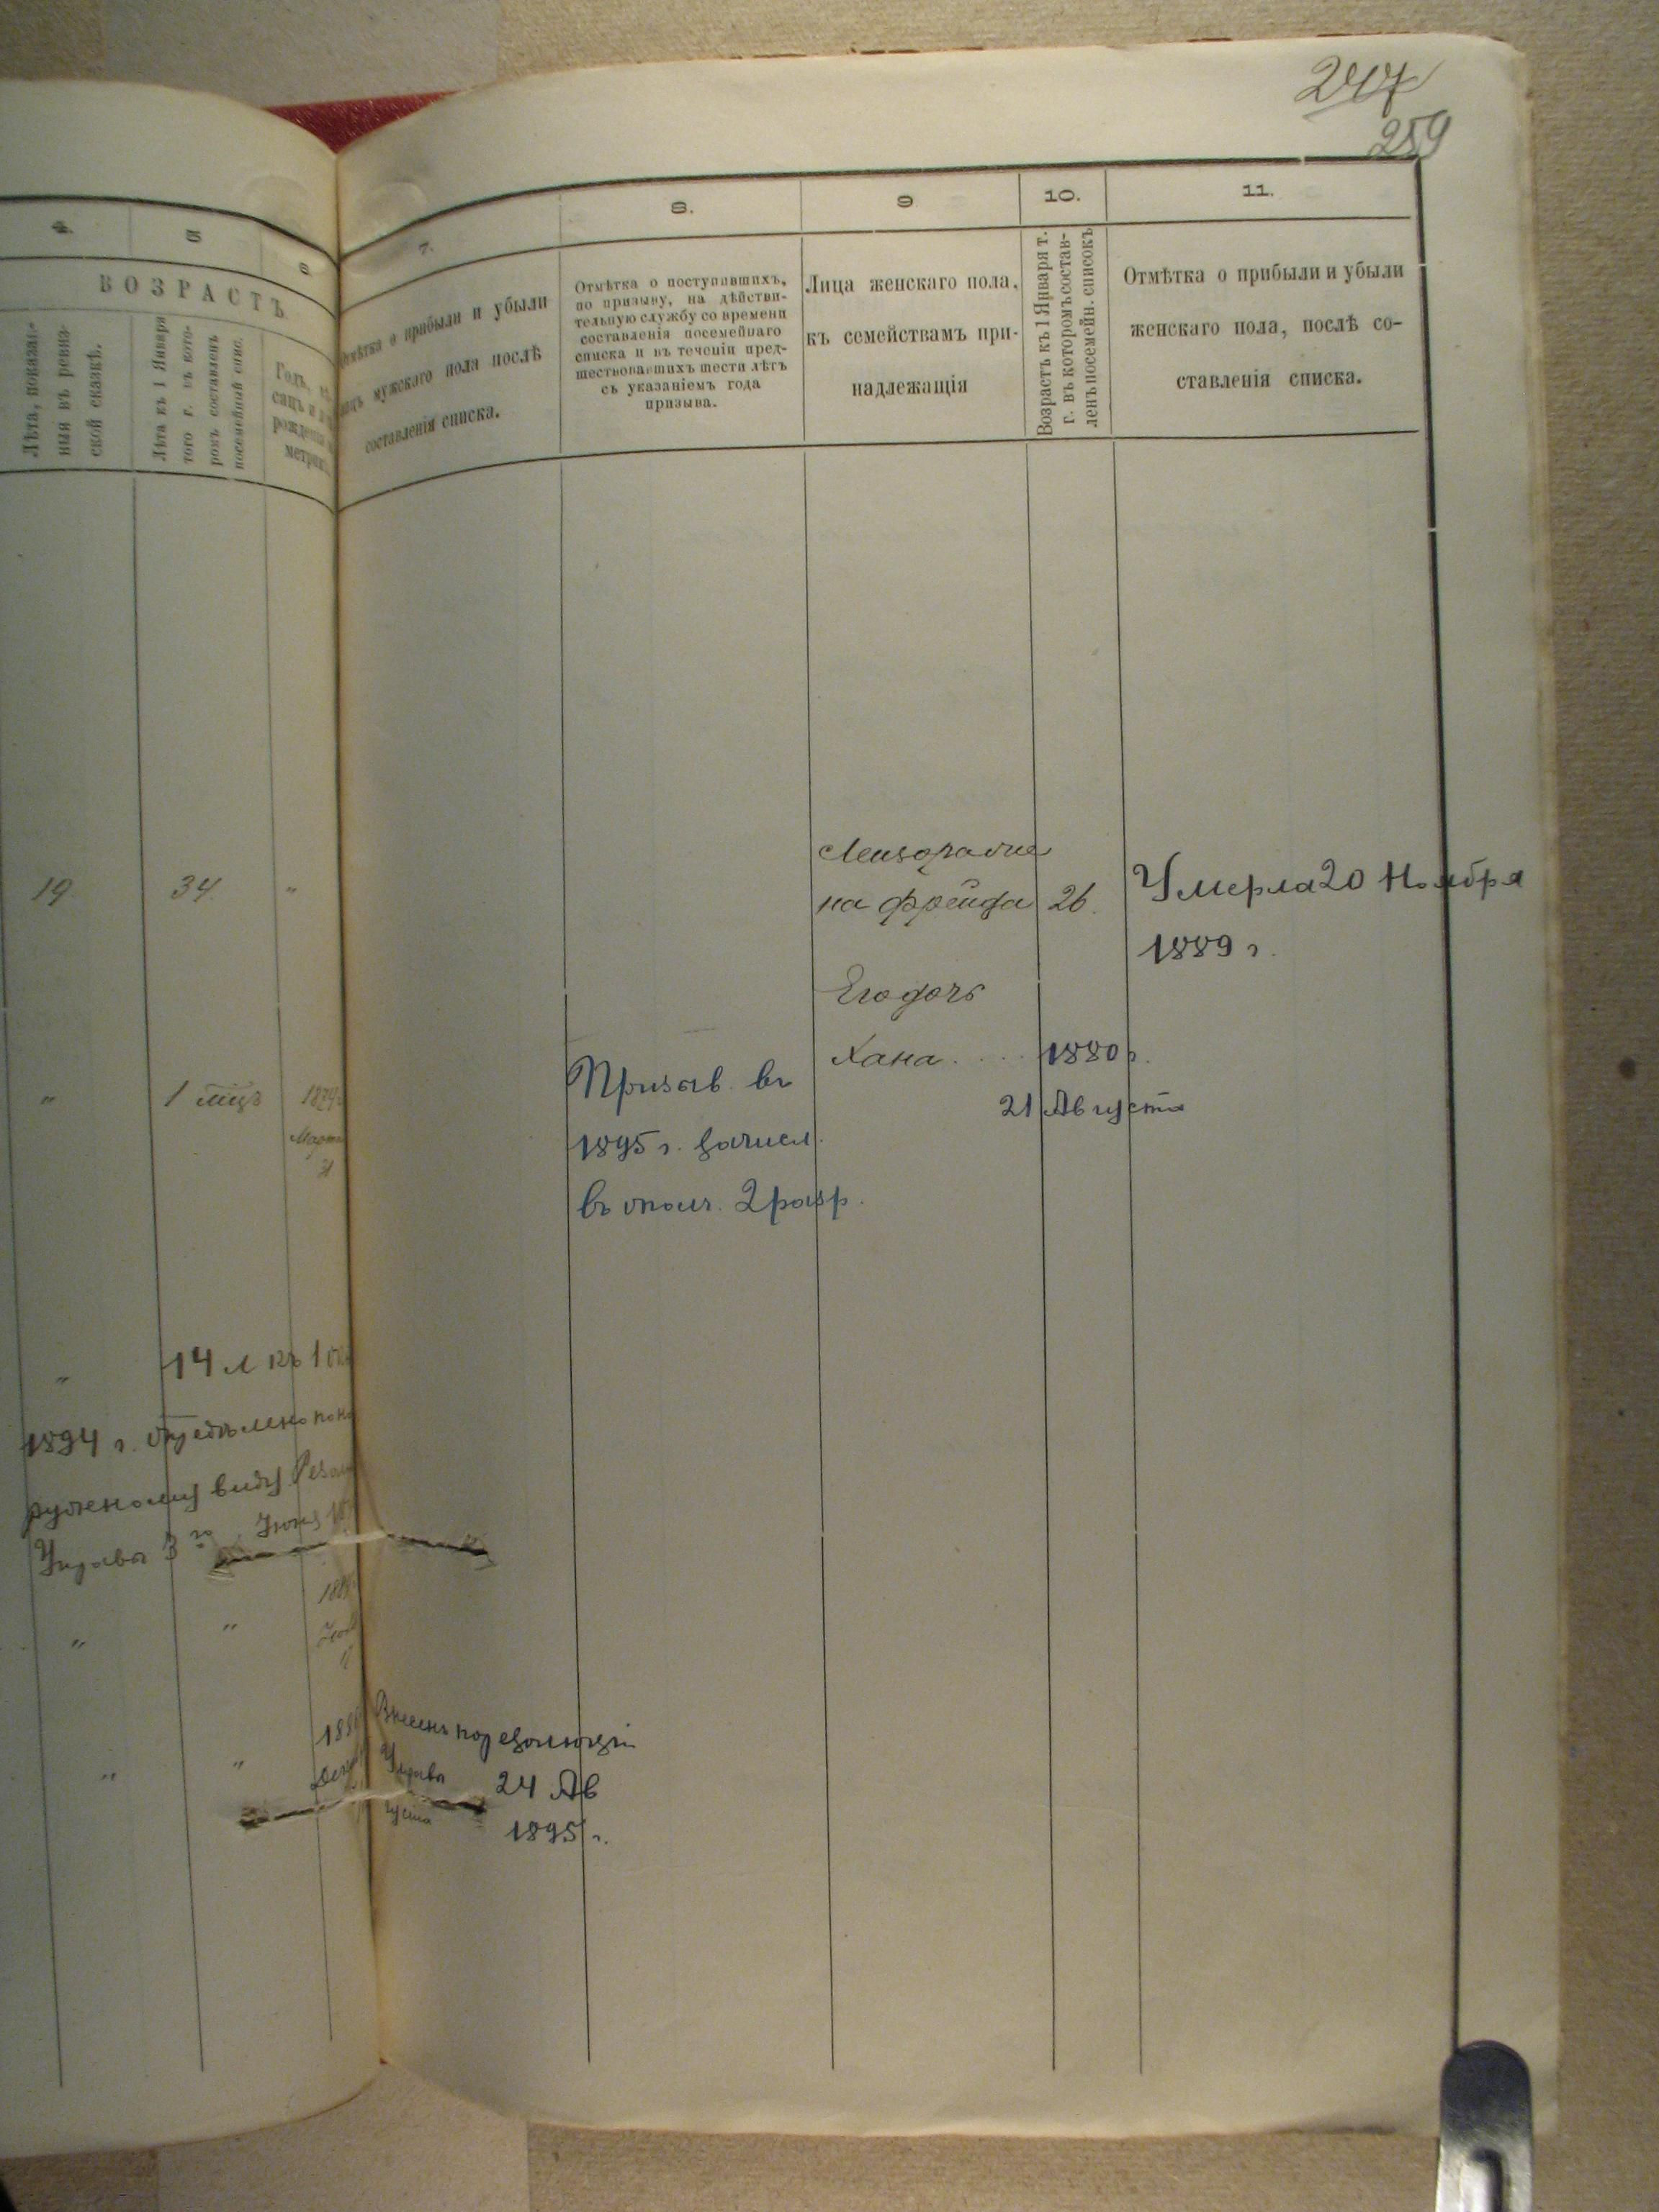 247
259
4.
5
6
7.
8.
9
10.
11.
ВОЗРАСТЪ.
Лѣта, показан-
ныя въ ревиз-
ской сказкѣ.
Лѣта къ 1 Января
того г. въ кото-
ромъ составленъ
посемейный спис.
Годъ, мѣ-
сяцъ и
рожденія
метрик
Отмѣтка о прибыли и убыли
лицъ мужскаго пола послѣ
составленія списка.
Отмѣтка о поступившихъ,
по призыву, на дѣйстви-
тельную службу со времени
составленія посемейнаго
списка и въ теченіи пред-
шествовавшихъ шести лѣтъ
съ указаніемъ года
призыва.
Лица женскаго пола,
къ семействамъ при-
надлежащія
Возрастъ къ 1 Января т.
г. въ которомъ состав-
ленъ посемейн. списокъ
Отмѣтка о прибыли и убыли
женскаго пола, послѣ со-
ставленія списка.
19. 34. "
на Фрейда 26.
Умерла 20 Ноября
1889 г.
Его дочь
Хана . . . . 1880 г.
21 Августа
" 1 мѣсц 1874
Марта
31
Призыв. въ
1895 г. зачисл.
въ ополч. 2 разр.
" 14 л къ 1
1894 г.
виду
Управы 3го Июня
" "
" " 188
Внесенъ по резолюціи
Управы 24 Ав
густа 1895 г.